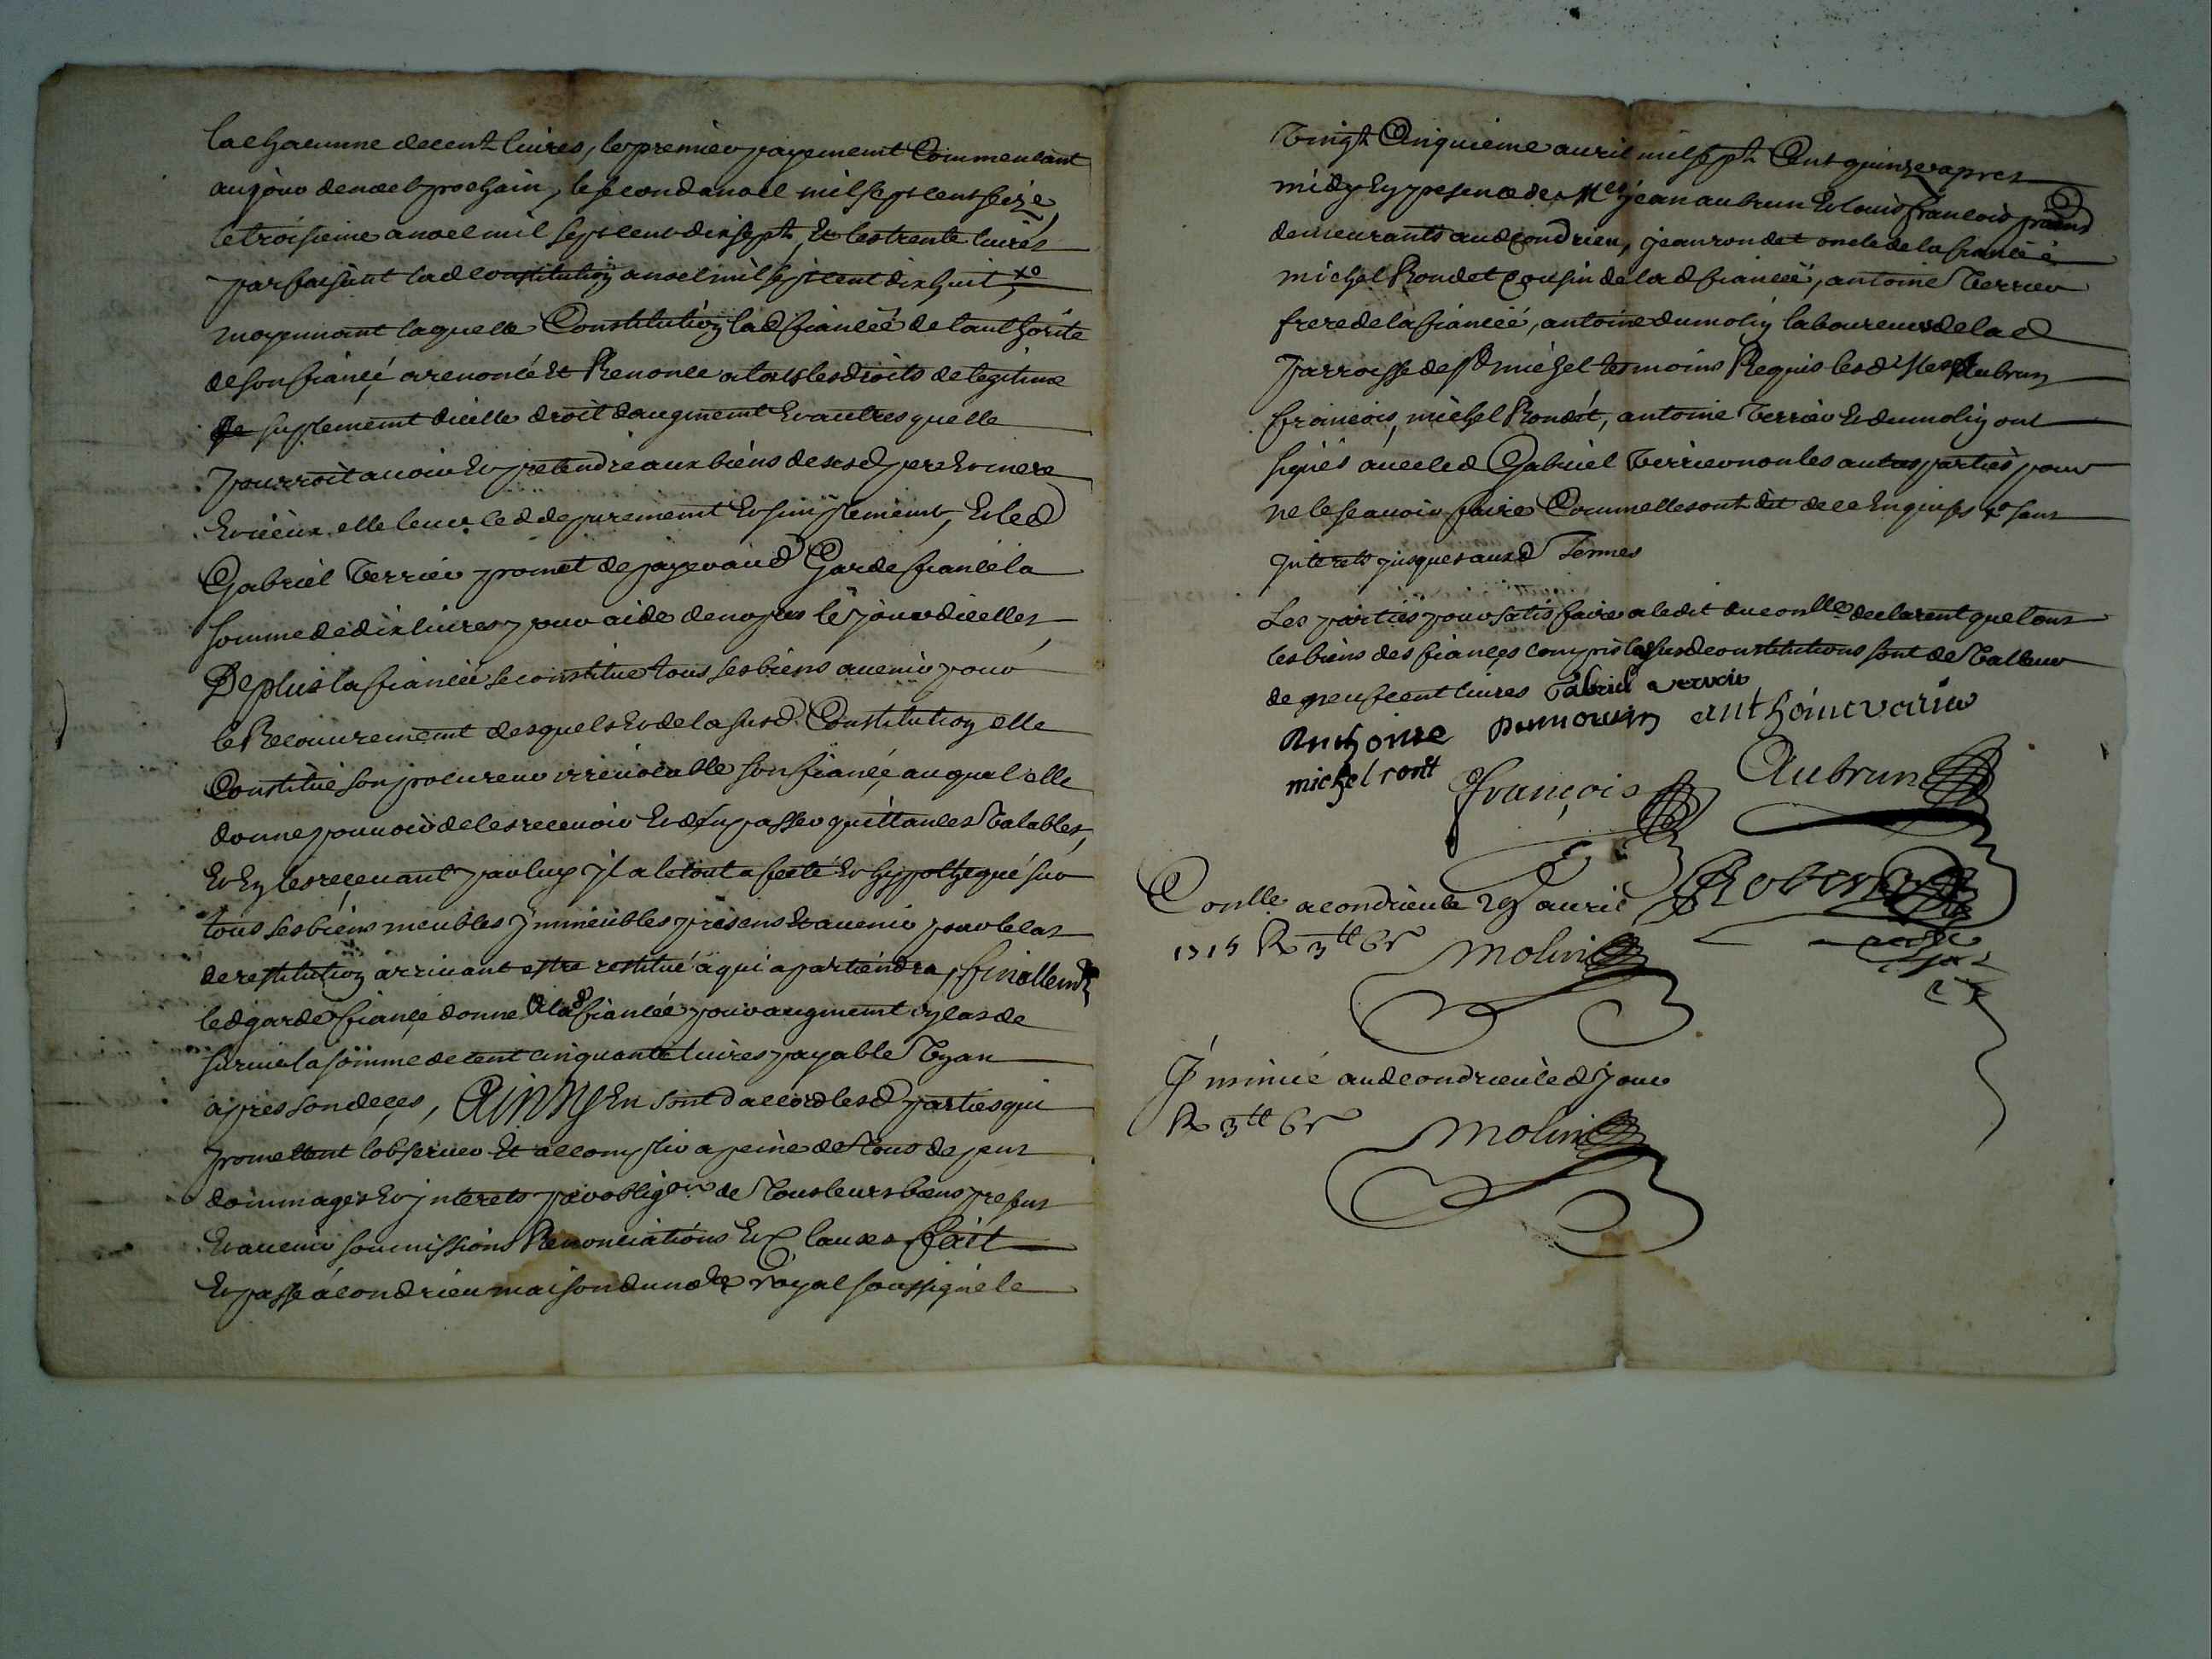 la chacunne de cent livres, le premier payement Commencant
au jour de noel prochain, le second a noel mil sept cent seize,
le troisieme a noel mil sept cent dix sept, Et les trente livres
parfaisant lad constitution a noel mil sept cent dix huit, xo
moyennant laquelle Constitution lad fiancéé de lauthorite
de son fiancé, a renoncé Et Renonce a tous les droits de legitime
suplement dicelle droit daugment Et autres quelle
pourroit avoir Et pretendre aux biens de sesd pere Et mere
Et iceux elle leur cedde purement Et simplement, Et led
Gabriel Verrier promet de payer aud Garde fiancé la
somme de dix livres pour aide de nopces le jour dicelles,
De plus la fiancéé se constitue tous ses biens avenir pour
le Recouvrement desquels Et de la susd Constitution elle
Constitue son procureur irrevocable son fiancé, auquel elle
donne pouvoir de les recevoir Et den passer quittances Valables,
Et En les recevant par luy Jl a le tout afecté Et hypothequé sur
tous ses biens meubles Jmmeubles presens Et avenir pour le cas
de restitution arrivant estre restitué a qui apartiendra, finallemt
led garde fiancé donne A lad fiancéé pour augment En cas de
survie la somme de cent cinquante livres payable Un an
apres son deces, AINSY En sont daccord lesd parties qui
promettent lobserver Et accomplir a peine de Tous depens
dommages Et Jnterets par obligon de Tous leurs biens presens
Et avenir soumissions Renonciations Et Clauses fait
Et passé á condrieu maison du notre royal soussigné le
Vingt Cinquieme avril mil sept Cent quinze apres
midy En presence de Mes jean aubrun Et louis francois
demeurants aud Condrieu, jean rondet oncle de la fiancéé
michel Rondet Cousin de lad fiancéé, antoine Verrier
frere de la fiancéé, antoine dumolin laboureur de lad
parroisse de St michel temoins Requis lesd Mes Aubrun
francois, michel Rondet, antoine Verrier Et dumolin ont
signés avec led Gabriel Verrier non les autres parties pour
ne le scavoir faire Comme elles ont dit de ce Enquises xo sans
Jnterets jusques auxd Termes
Les parties pour satisfaire a ledit du conlle declarent que tous
les biens des fiancés compris les susd constitutions sont de Valleur
de neuf cent livres Gabriel verrier
Anthoine Dumoulin anthoine varier
michel rontt François Aubrun
Conlle a condrieu le 29 avril Robert
1715 R 3tt 6s Molin
Jnsinué aud condrieu led jour
R 3tt 6s Molin